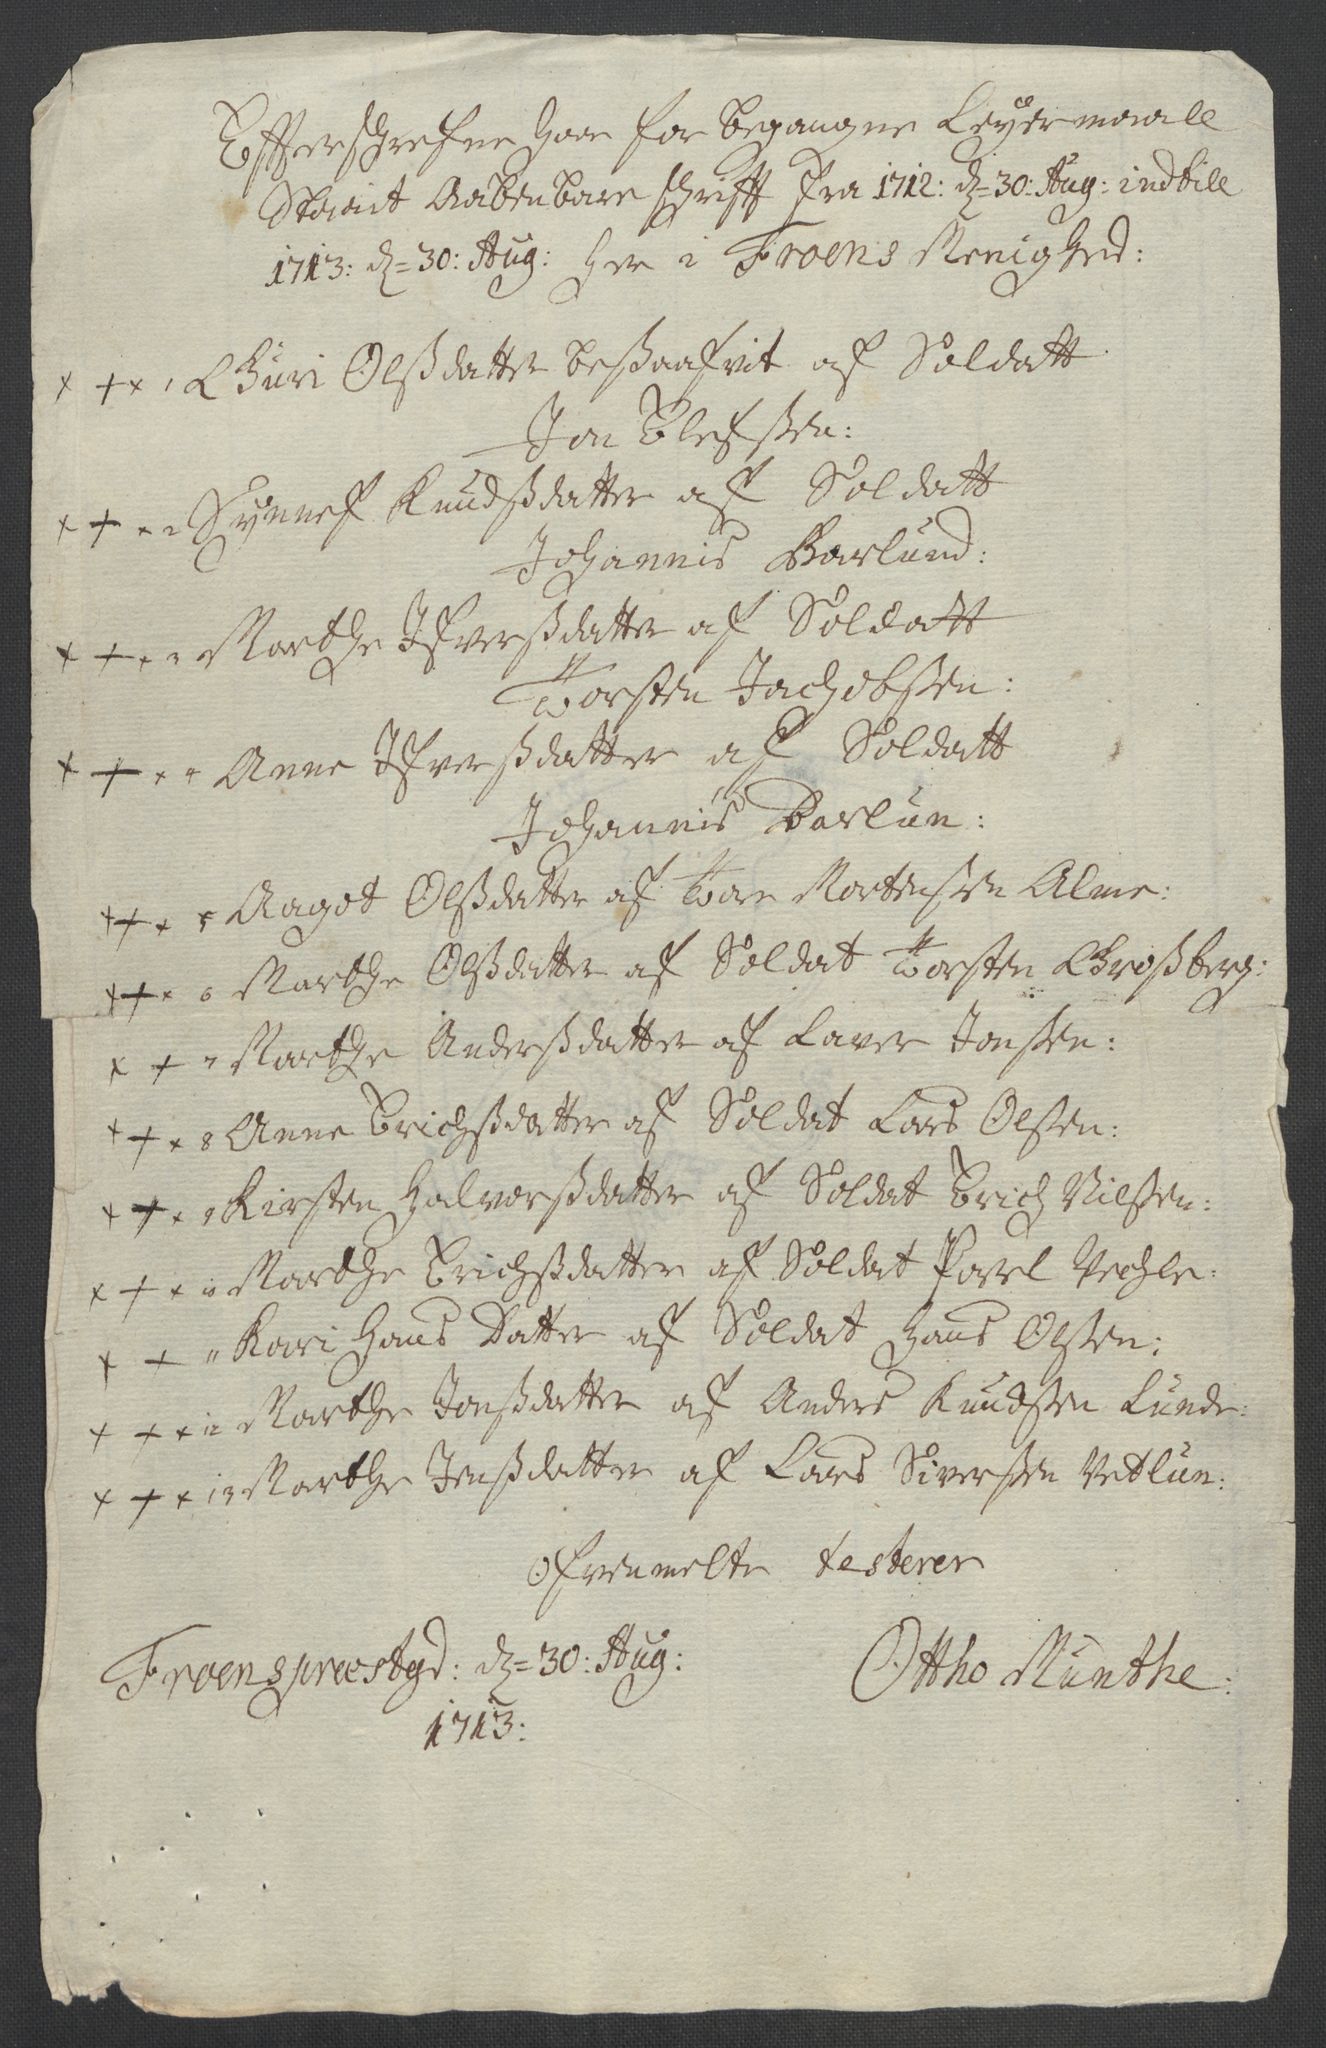 Effterschrefne Haar for begangne Leyermaall
Staait Aabenbare schrifft fra 1712: d= 30: Aug: indtill
1713: d= 30: Aug: Her i Froens Menighed:
× + × 1 Guri Olßdatter beßaafvit af Soldatt
Jon Elefsen:
× + × 2 Synnef Knudßdatter af Soldatt
Johannis Barlund:
× + × 3 Marthe Ifverßdatter af Soldatt
Torsten Jachobsen:
× + × 4 Anne Ifverßdatter af Soldatt
Johannis Barlun:
× + × 5 Aagot Olßdatter af Tore Mortensen Alme:
× + × 6 Marthe Olßdatter af Soldat Torsten Großberg:
× + 7 Marthe Anderßdatter af Laver Jonsen:
× + × 8 Anne Erichßdatter af Soldat Lars Olsen:
× + × 9 Kirsten Halvorßdatter af Soldat Erich Nilsen:
× + × 10 Marthe Erichßdatter af Soldat Povel Vechle:
× + 11 Kari Hans Datter af Soldat Hans Olsen:
× + × 12 Marthe Jonßdatter af Anders Knudsen Lunde:
× + × 13 Marthe Jenßdatter af Lars Siversen Vetlun:
Ofvenmelte testerer
Froens præstgd: d= 30: Aug: Ottho Munthe:
1713: